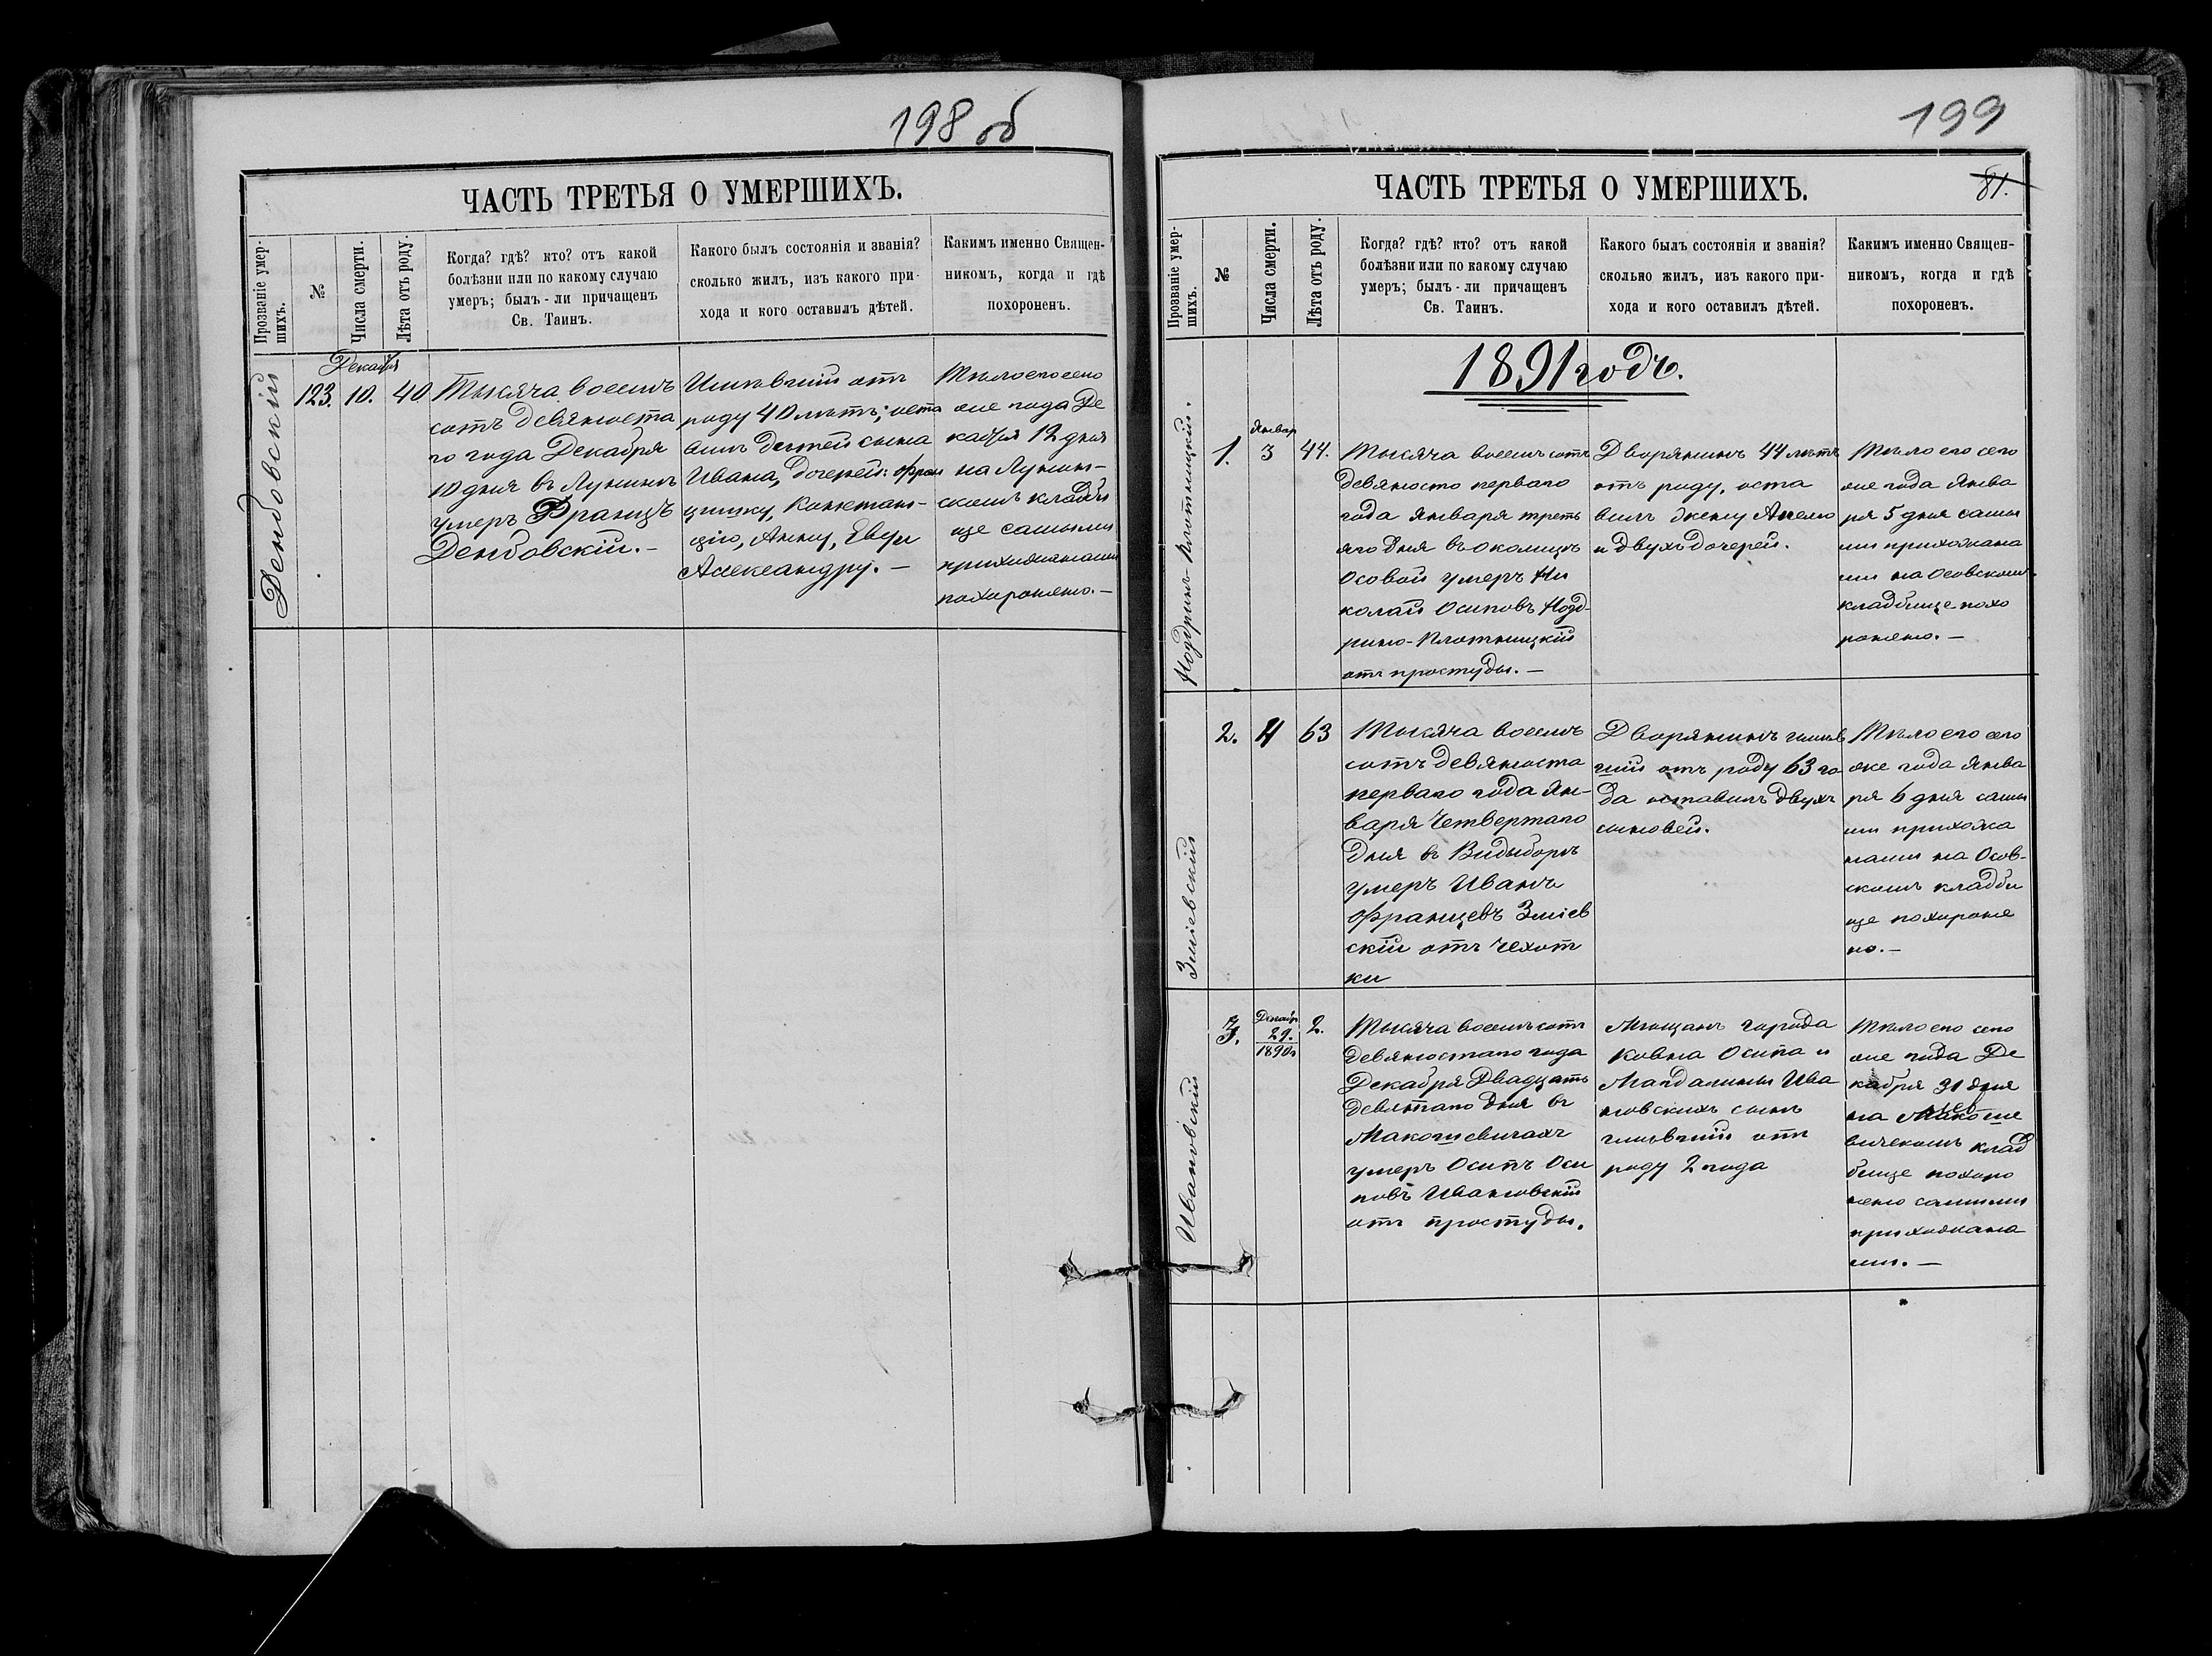 198 об
ЧАСТЬ ТРЕТЬЯ О УМЕРШИХЪ.
Прозваніе умер-
шихъ.
№
Числа смерти.
Лѣта отъ роду.
Когда? гдѣ? кто? отъ какой
болѣзни или по какому случаю
умеръ; былъ-ли причащенъ
Св. Таинъ.
Какого былъ состоянія и званія?
сколько жилъ, изъ какого при-
хода и кого оставилъ дѣтей.
Каким именно Священ-
никомъ, когда и гдѣ
похороненъ.
Денбовскій
123.
Декабря
10.
40
Тысяча восемь
сотъ девяноста
го года Декабря
10 дня въ Лунинѣ
умеръ Францъ
Денбовскій.-
Имѣвшій отъ
роду 40 лѣтъ; оста
вилъ дѣтей сына
Ивана, дочерей: Фран
цишку, Констан-
цію, Анну, Еву и
Александру.-
Тѣло его сего
же года Де
кабря 12 дня
на Лунин-
скомъ кладби
ще самыми
прихожанами
похоронено.-
199
81.
ЧАСТЬ ТРЕТЬЯ О УМЕРШИХЪ.
Прозваніе умер-
шихъ.
№
Числа смерти.
Лѣта отъ роду.
Когда? гдѣ? кто? отъ какой
болѣзни или по какому случаю
умеръ; былъ-ли причащенъ
Св. Таинъ.
Какого былъ состоянія и званія?
сколько жилъ, изъ какого при-
хода и кого оставилъ дѣтей.
Каким именно Священ-
никомъ, когда и гдѣ
похороненъ.
1891 годъ.
Ноздринъ-Плотницкій.
1.
Январ
3
44.
Тысяча восемь сотъ
девяносто перваго
года Января треть
яго дня въ околицѣ
Осовой умеръ Ни
колай Осиповъ Нозд-
рино-Плотницкій
отъ простуды.-
Дворянинъ 44 лѣтъ
отъ роду, оста
вилъ жену Анелю
и двухъ дочерей.
Тѣло его сего
же года Янва
ря 5 дня самы
ми прихожана
ми на Осовскомъ
кладбище похо
ронено.-
Зміевскій
2.
4
63
Тысяча восемь
сотъ девяноста
перваго года Ян-
варя Четвертаго
дня въ Видыборѣ
умеръ Иванъ
Францевъ Зміев
скій отъ чехот
ки
Дворянинъ имѣв
шій отъ роду 63 го
да оставилъ двухъ
сыновей.
Тѣло его сего
же года Янва
ря 6 дня самы
ми прихожа
нами на Осов-
скомъ кладби
ще похороне
но.-
Ивановскій
3.
Декабр
29.
1890г
2.
Тысяча восемь сотъ
девяностаго года
Декабря Двадцать
девятаго дня въ
Макошевичахъ
умеръ Осипъ Оси
повъ Ивановскій
отъ простуды.
Мѣщанъ города
Ковна Осипа и
Магдалины Ива
новскихъ сынъ
имѣвшій отъ
роду 2 года
Тѣло его сего
же года Де
кабря 31 дня
на Макоше
вичскомъ клад
бище похоро
нено самыми
прихожана
ми.-